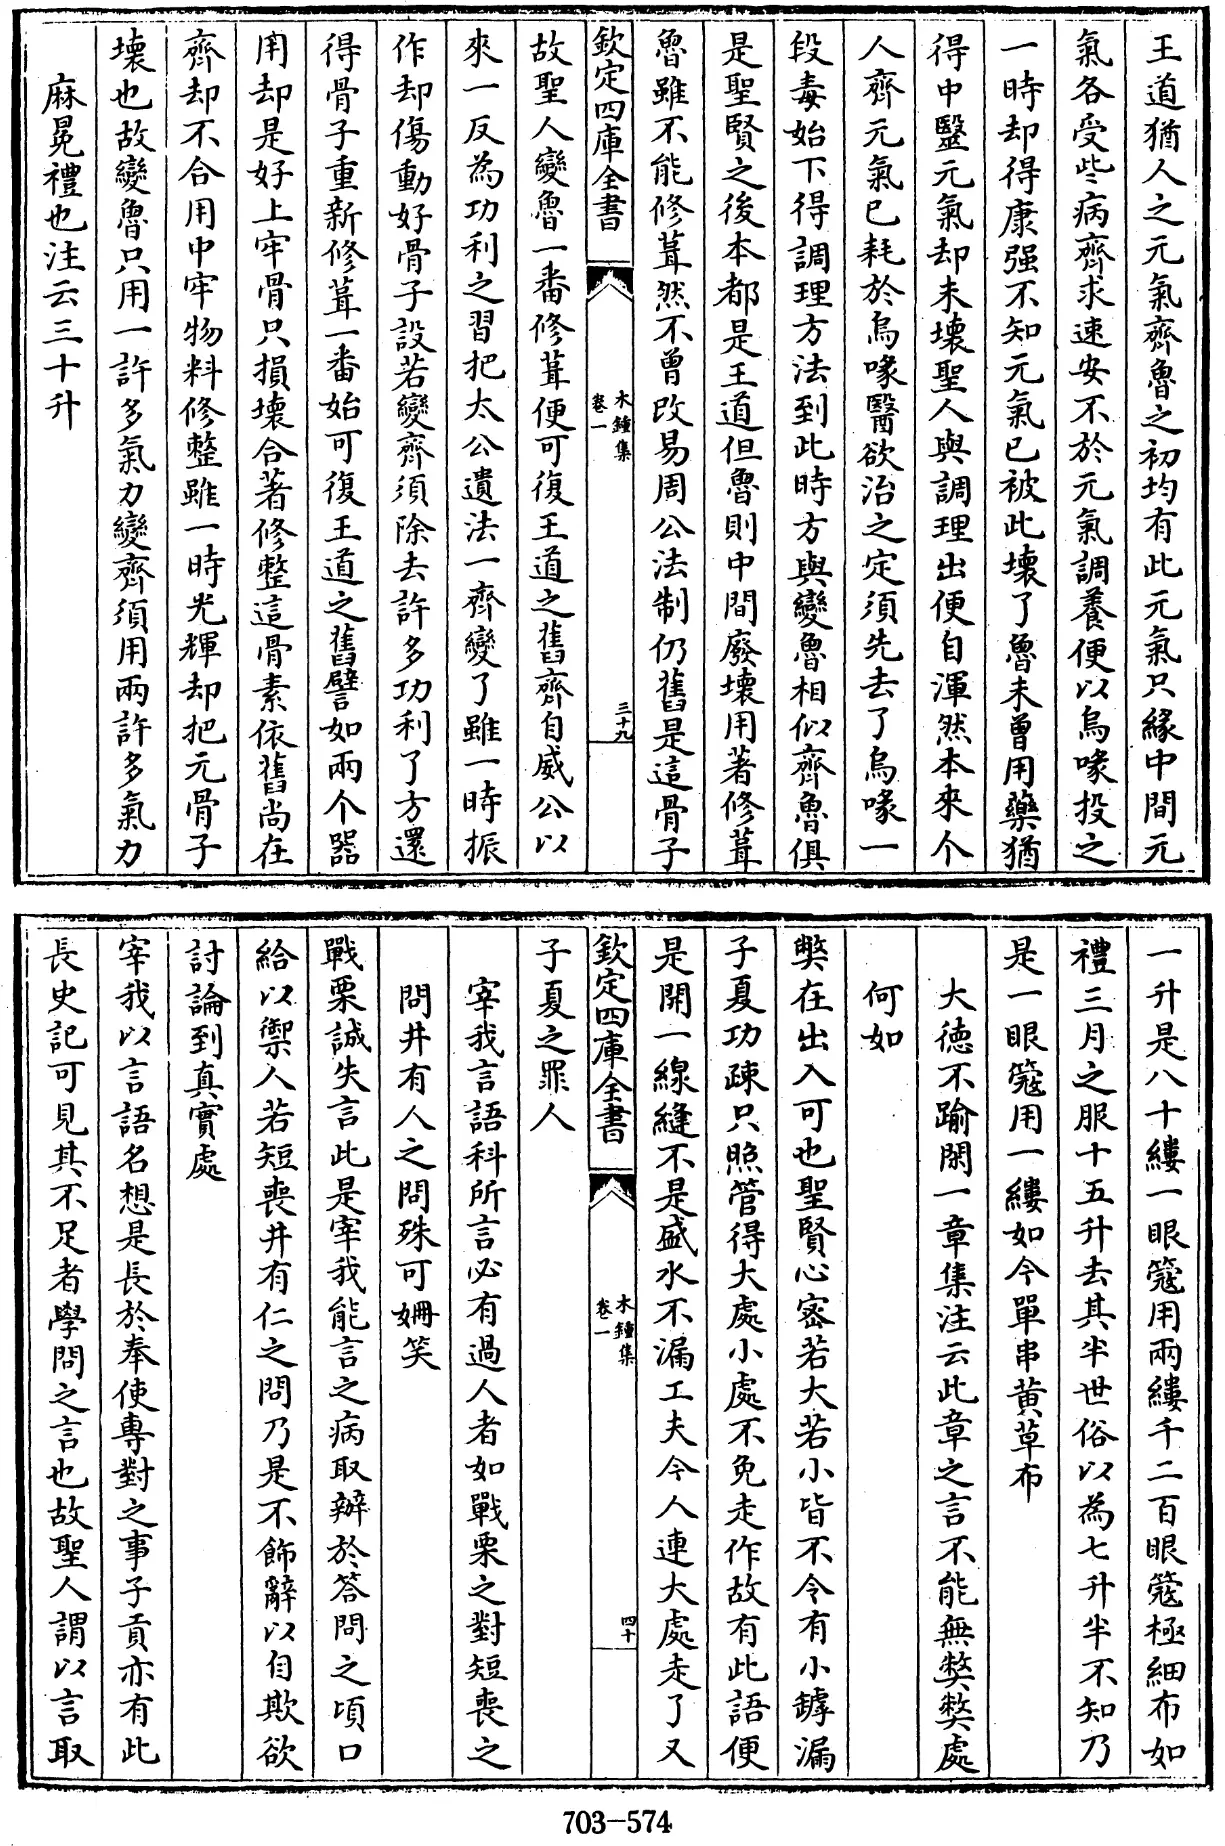 王道猶人之元氣齊魯之初均有此元氣只緣中間元
氣各受些病齊求速安不於元氣調養便以烏喙投之
一時却得康强不知元氣已被此壞了魯未曾用藥猶
得中醫元氣却未壞聖人與調理出便自渾然本來个
人齊元氣已耗於烏喙醫欲治之定須先去了烏喙一
段毒始下得調理方法到此時方與變魯相似齊魯俱
是聖賢之後本都是王道但魯則中間廢壞用著修葺
魯雖不能修葺然不曾改易周公法制仍舊是這骨子
欽定四庫全書
木鍾集
卷一
三十九
故聖人變魯一番修葺便可復王道之舊齊自威公以
來一反為功利之習把太公遺法一齊變了雖一時振
作却傷動好骨子設若變齊須除去許多功利了方還
得骨子重新修葺一番始可復王道之舊譬如兩个器
用却是好上牢骨只損壞合著修整這骨素依舊尚在
齊却不合用中牢物料修整雖一時光輝却把元骨子
壞也故變魯只用一許多氣力變齊須用兩許多氣力
麻冕禮也注云三十升
一升是八十縷一眼𥰓用兩縷千二百眼𥰓極細布如
禮三月之服十五升去其半世俗以為七升半不知乃
是一眼𥰓用一縷如今單串黄草布
大德不踰閑一章集注云此章之言不能無弊弊處
何如
弊在出入可也聖賢心密若大若小皆不令有小罅漏
子夏功疎只照管得大處小處不免走作故有此語便
是開一線縫不是盛水不漏工夫今人連大處走了又
欽定四庫全書
木鍾集
卷一
四十
子夏之罪人
宰我言語科所言必有過人者如戰栗之對短喪之
問井有人之問殊可姍笑
戰栗誠失言此是宰我能言之病取辦於答問之頃口
給以禦人若短喪井有仁之問乃是不飾辭以自欺欲
討論到真實處
宰我以言語名想是長於奉使專對之事子貢亦有此
長史記可見其不足者學問之言也故聖人謂以言取
703-574